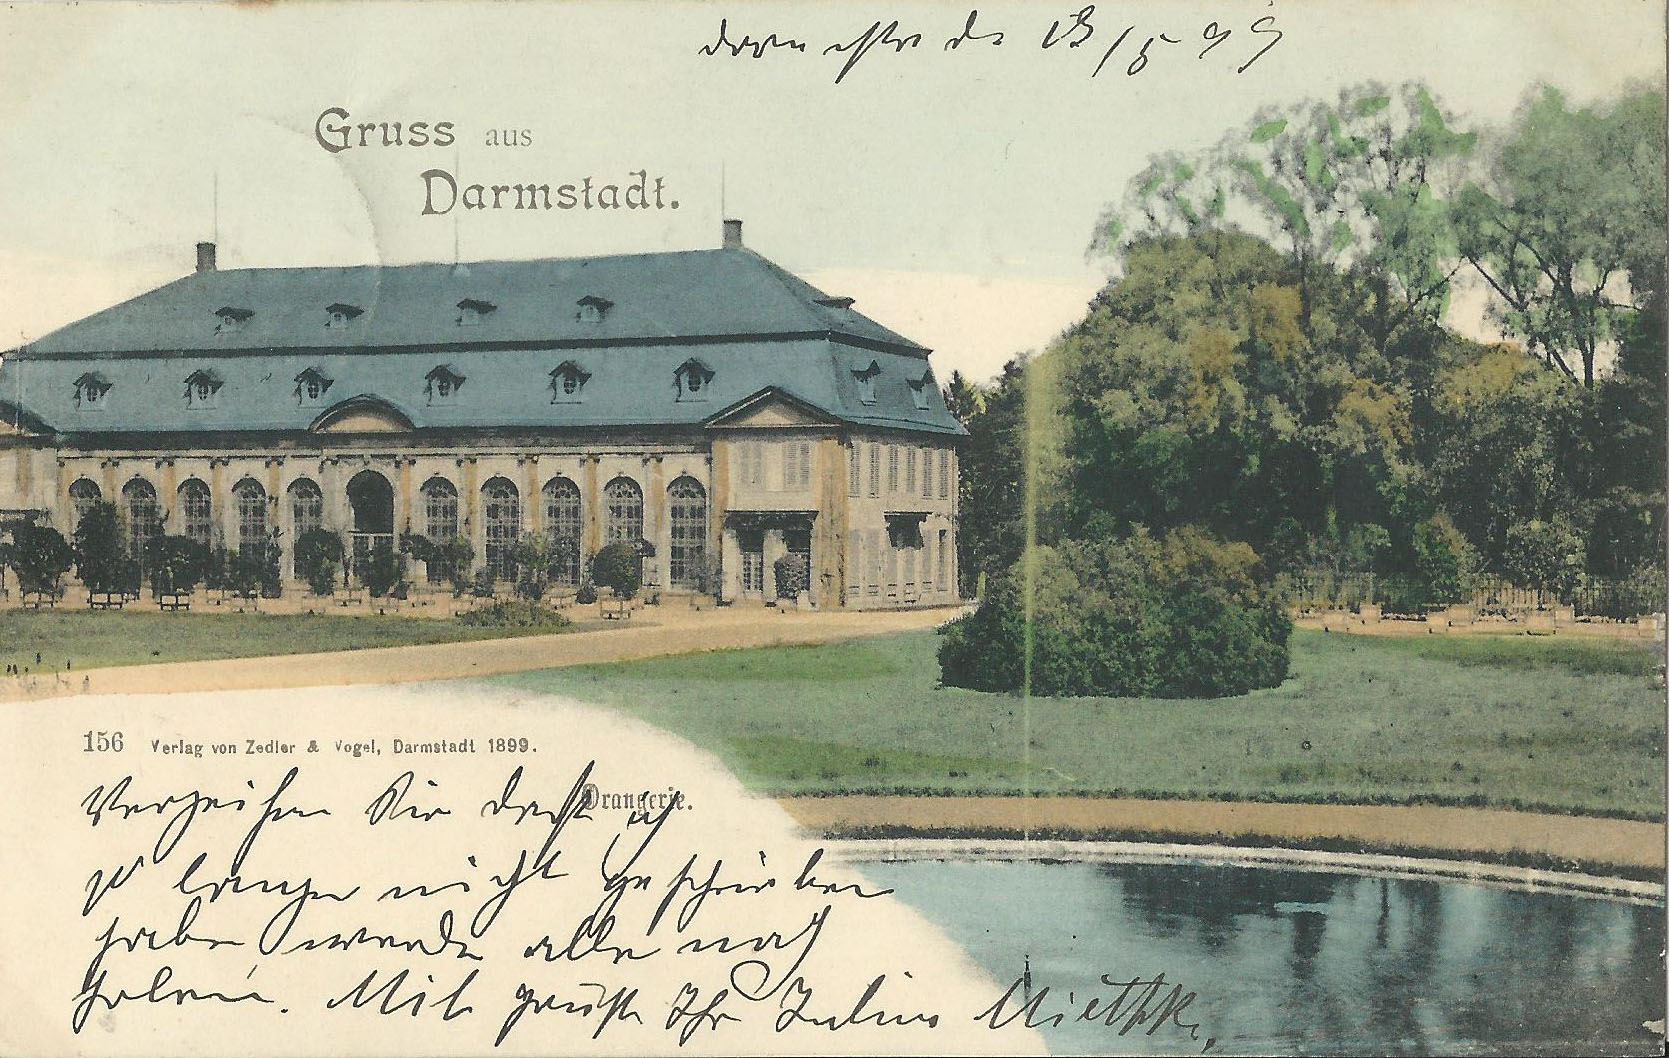 13/5 99
Gruss aus
Darmstadt.
156 Verlag von Zedler & Vogel, Darmstadt 1899.
Orangerie.
Verzeihen Sie dass ich
so lange nicht geschrieben
habe werde alle nach
holen. Mit gruss Ihr Julius